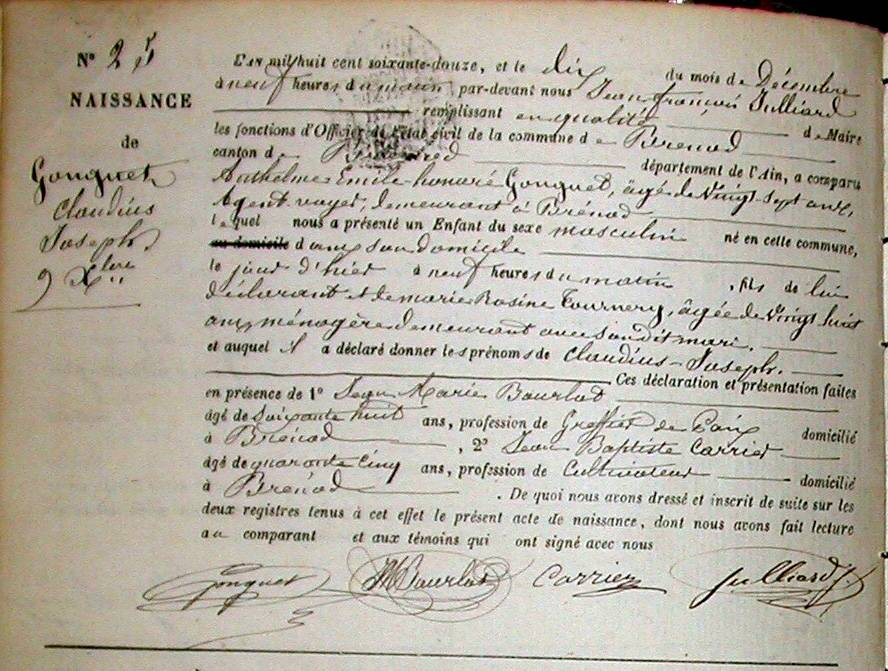 N° 25
NAISSANCE
de
Gonguet
Claudius
Joseph
9 Xbre
L'AN mil huit cent soixante-douze, et le dix du mois de Décembre
à neuf heures du matin par-devant nous Jean françois Julliard
remplissant en qualité de Maire
les fonctions d'Officier de l'état civil de la commune de Brénod
canton de Brénod département de l'Ain, a comparu
Anthelme Emile honoré Gonguet, âgé de vingt sept ans,
Agent voyer, demeurant à Brénod
lequel nous a présenté un Enfant du sexe masculin né en cette commune,
au domicile dans son domicile
le jour d'hier à neuf heures du matin, fils de lui
déclarant et de marie Rosine Tournery, âgée de vingt huit
ans, ménagère demeurant avec son dit mari.
et auquel il a déclaré donner les prénoms de Claudius-Joseph.
Ces déclaration et présentation faites
en présence de 1° Jean Marie Bourlod
âgé de Soixante huit ans, profession de Greffier de Paix domicilié
à Brénod, 2° Jean Baptiste Carrier
âgé de quarante cinq ans, profession de Cultivateur domicilié
à Brénod. De quoi nous avons dressé et inscrit de suite sur les
deux registres tenus à cet effet le présent acte de naissance, dont nous avons fait lecture
au comparant et aux témoins qui ont signé avec nous
Gonguet JM Bourlod Carrier Julliard J.